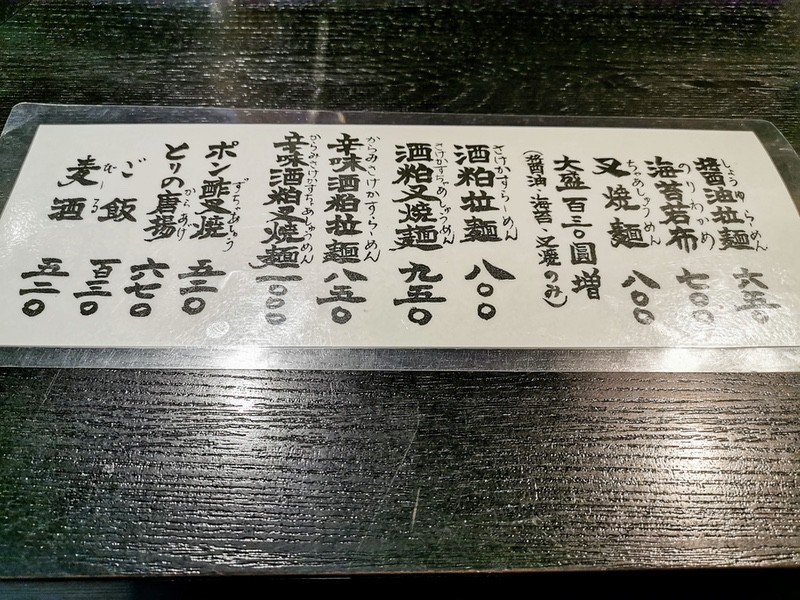 醤油拉麺 しょうゆらーめん 六五〇
海苔若布 のりわかめ 七〇〇
叉焼麺 ちゃあしゅうめん 八〇〇
大盛百三〇圓増
(醤油・海苔・叉焼のみ)
酒粕拉麺 さけかすらーめん 八〇〇
酒粕叉焼麺 さけかすちゃあしゅうめん 九五〇
辛味酒粕拉麺 からみさけかすらーめん 八五〇
辛味酒粕叉焼麺 からみさけかすちゃあしゅうめん 一〇〇〇
ポン酢叉焼 ずちゃあちゅう 五二〇
とりの唐揚 からあげ 六七〇
ご飯 百三〇
麦酒 びーる 五二〇